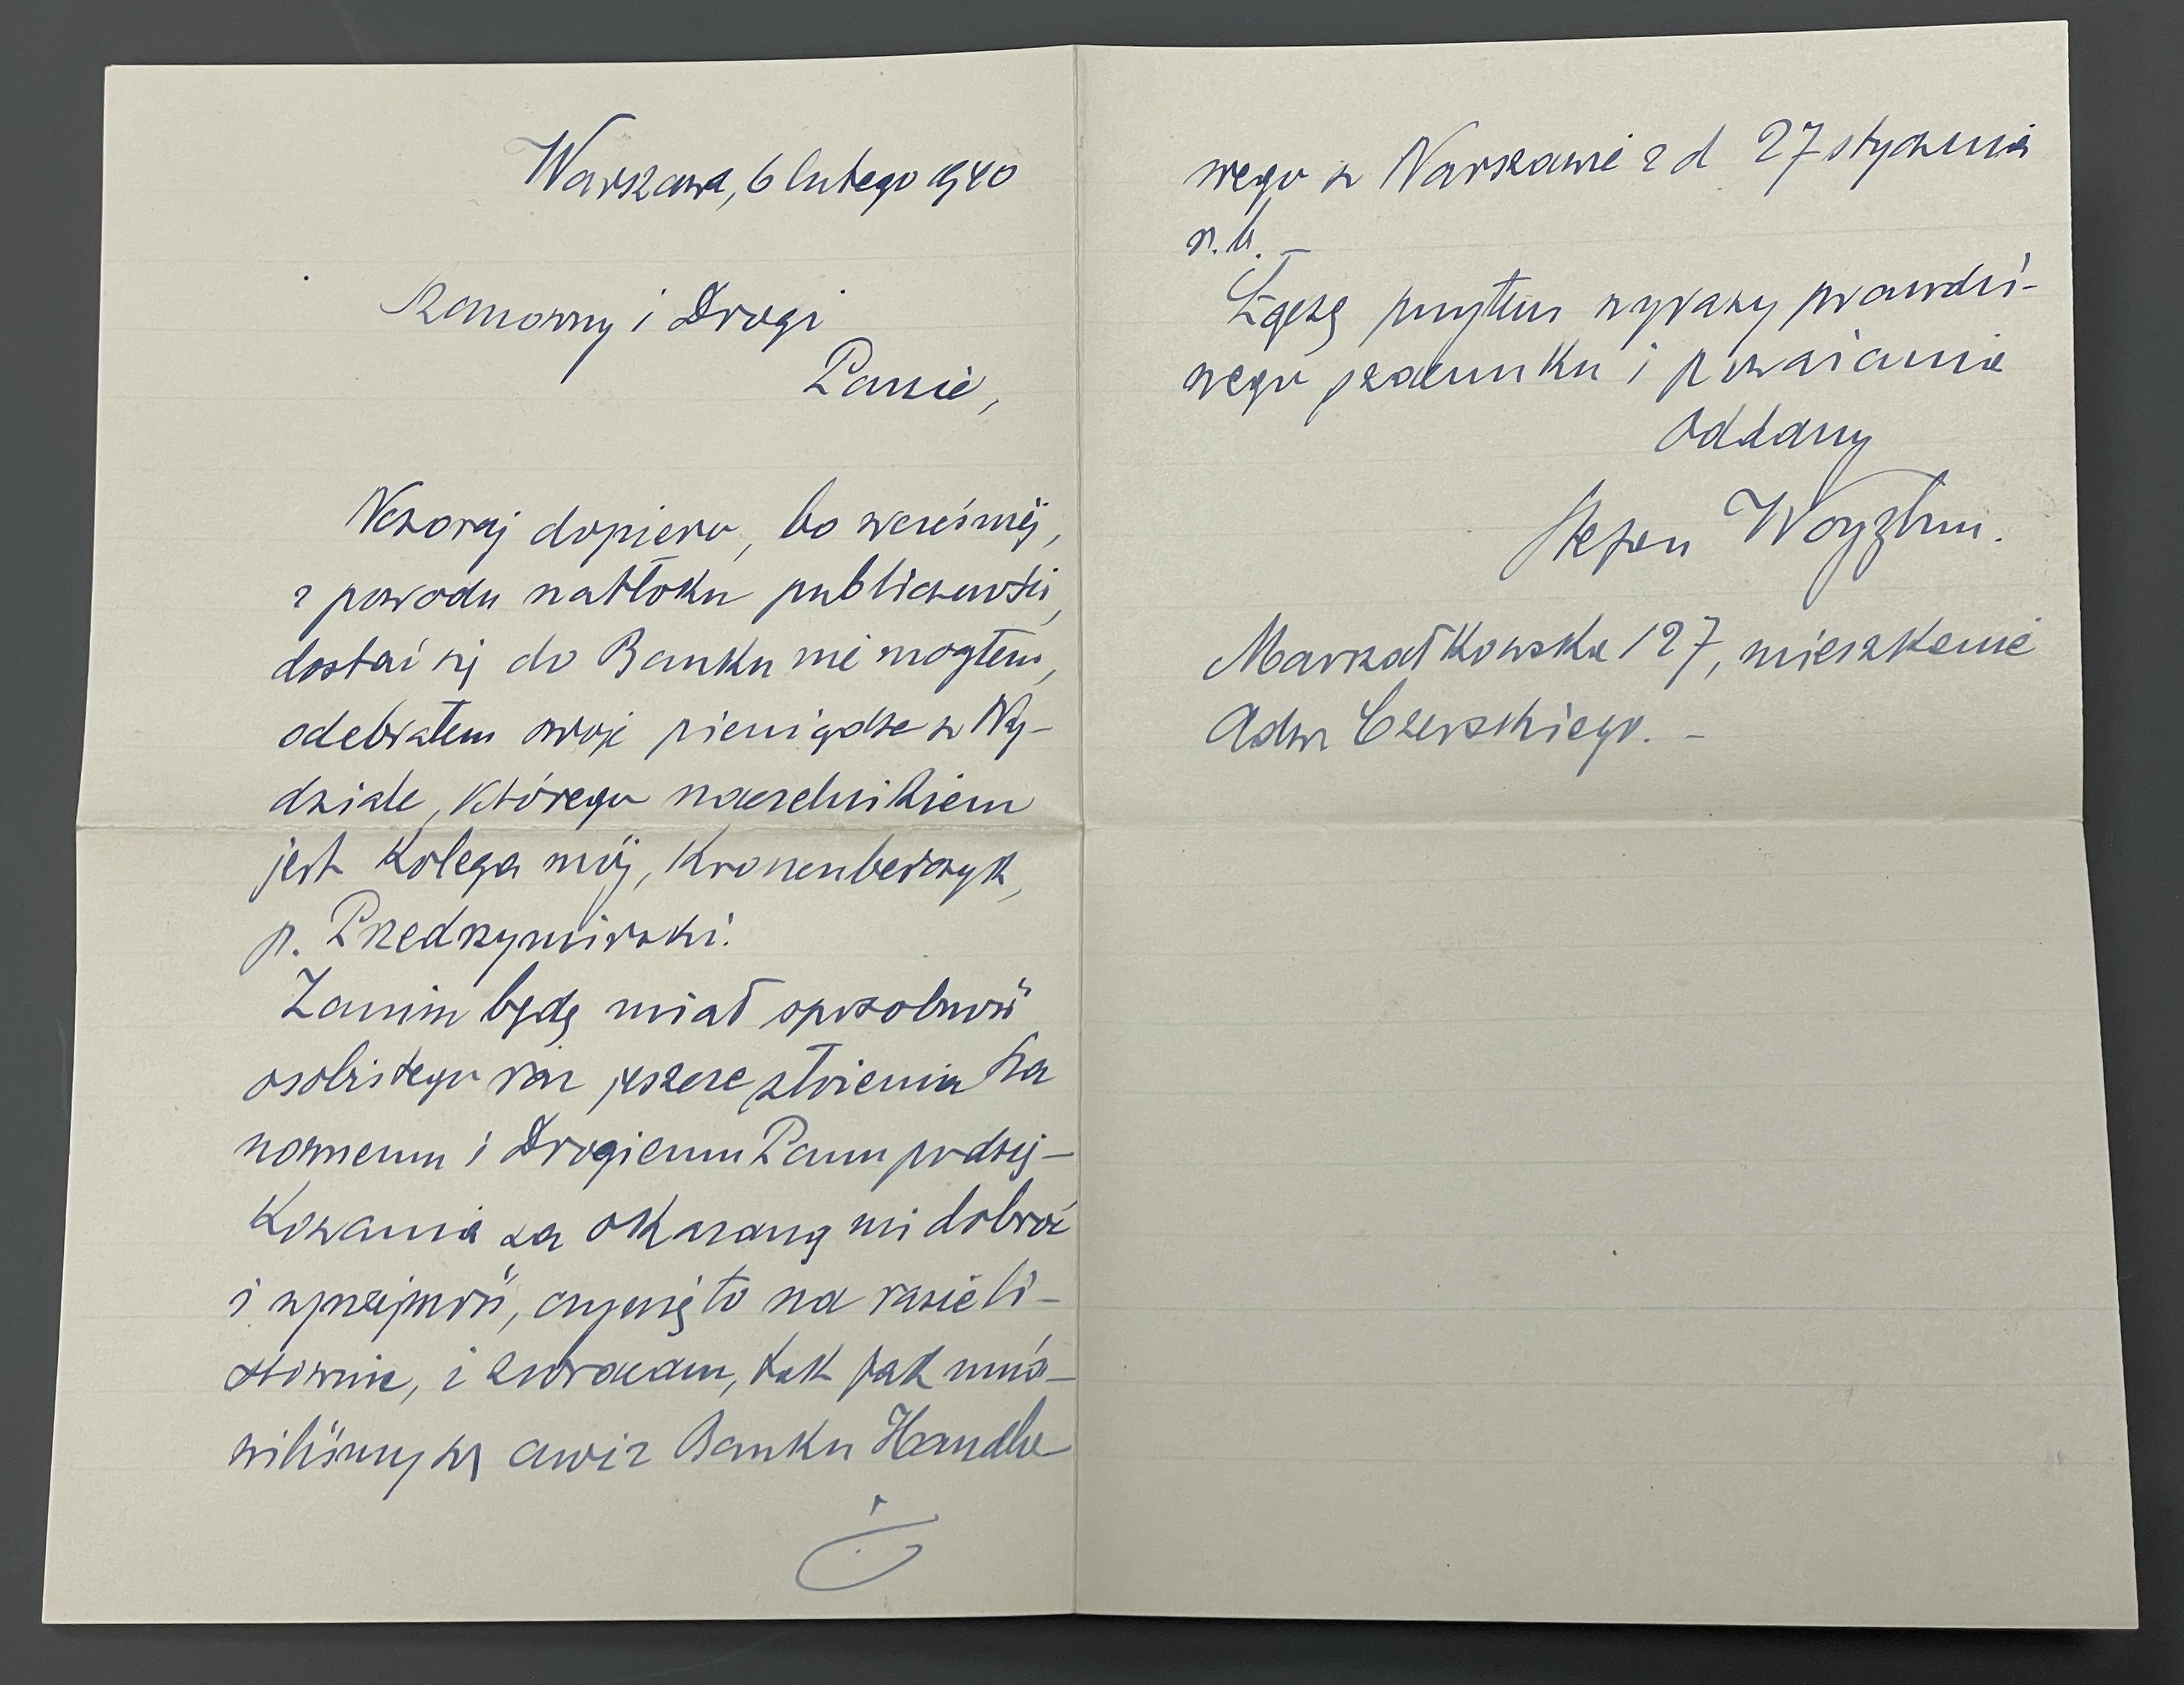 Warszawa, 6 lutego 1940
Szanowny i Drogi
Panie,
Wczoraj dopiero, bo wcześniej,
z powodu natłoku publiczności,
dostać się do Banku nie mogłem,
odebrałem swoje pieniądze w Wy-
dziale, którego naczelnikiem
jest Kolega mój, Kronenberczyk,
p. Przedrzymirski.
Zanim będę miał sposobność
osobistego raz jeszcze złożenia Sza
nownemu i Drogiemu Panu podzię-
kowania za okazaną mi dobroć
i uprzejmość, czynię to na razie li-
stownie, i zwracam, tak jak mó-
wiliśmy awiz Banku Handlo
wego w Warszawie z d 27 stycznia
r.b. –
Łączę przytem wyrazy prawdzi-
wego szacunku i poważania
Oddany
Stefan
Marszałkowska 127, mieszkanie
Adw Czerskiego. –